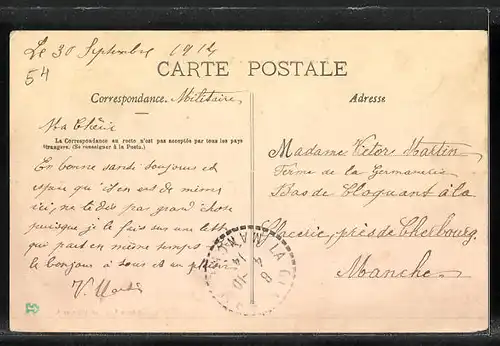 Le 30 Septembre 1914
54
CARTE POSTALE
Correspondance. Militaire
Adresse
Ma Chérie
La Correspondance au recto n'est pas acceptée par tous les pays
étrangers. (Se renseigner à la Poste.)
En bonne santé toujours et
espère qu'il en est de même
ici, ne te dis pas grand chose
puisque je le fais sur une lettre
qui part en même temps
le bonjour à tous et au plaisir
V. Martin
Madame Victor Martin
Ferme de la
Bas de Cloquant à la
Glacerie, près de Cherbourg
Manche
LA GLACERIE
MANCHE